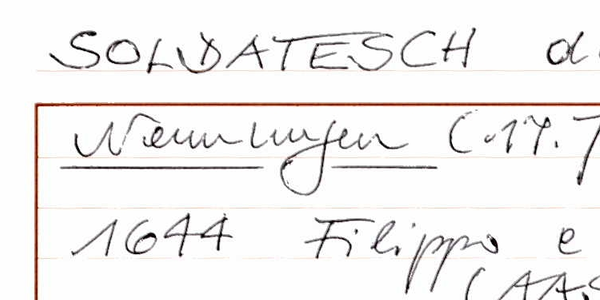 SOLDATESCH
Nennungen (.17.
1644 Filippo e
(AAS